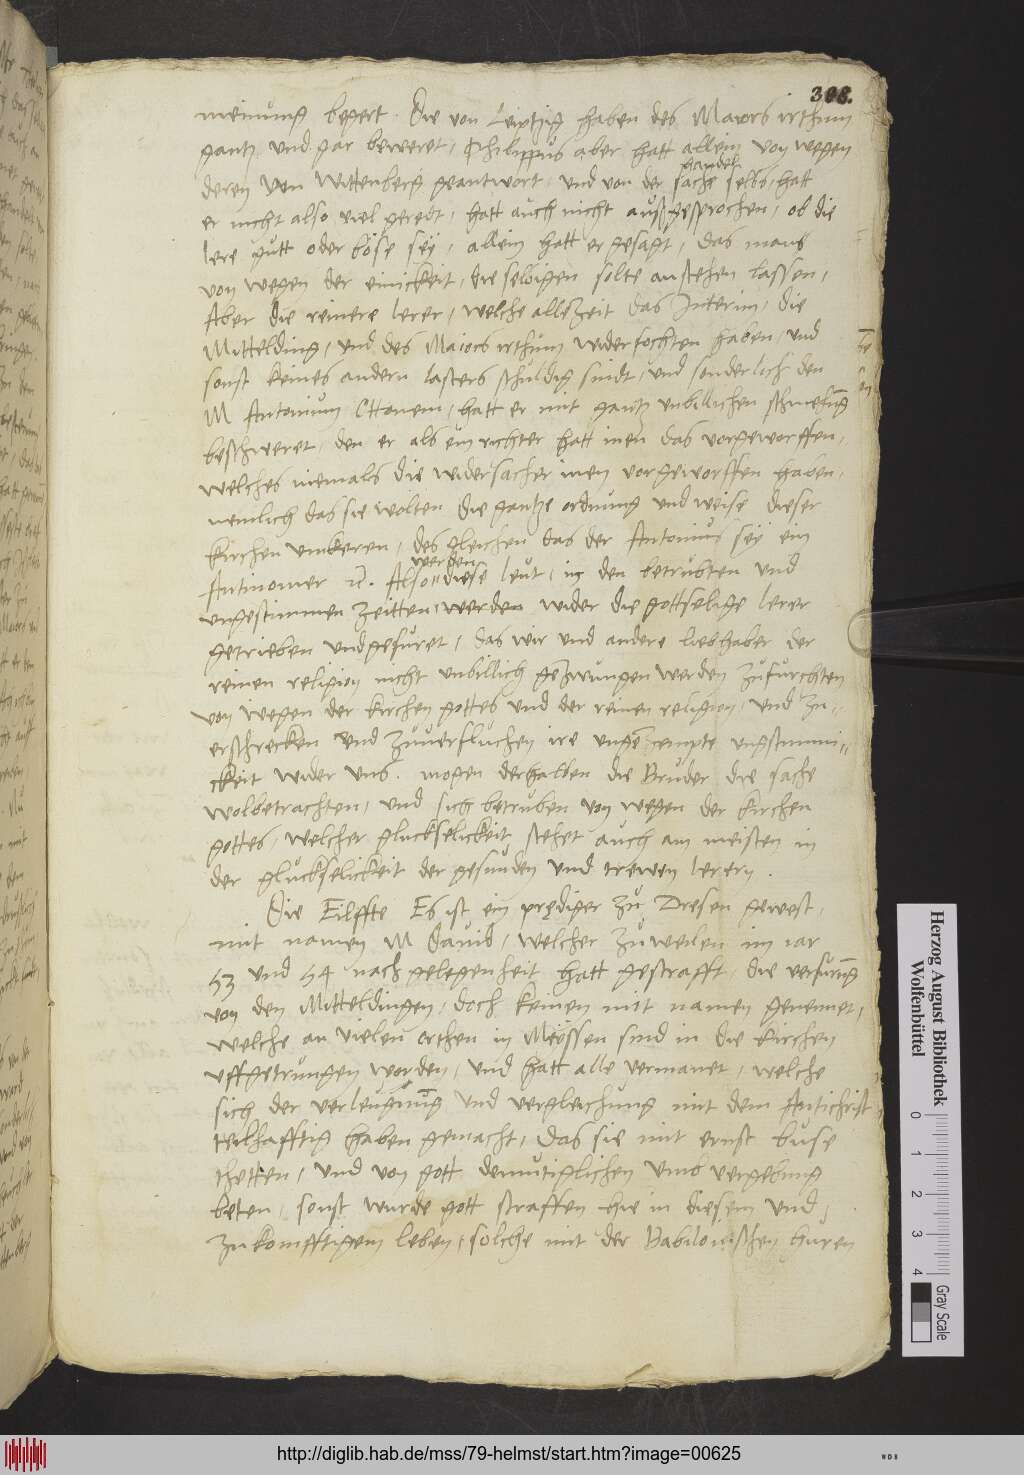 308.
meinung begert. Die von Leiptzig haben des Maiors irthum
gantz und gar beweret, Philippus aber hatt allein von wegen
deren von Wittenberg geantwort, und von der sache selbs hatt
handel
er nicht also viel geredt, hatt auch nicht außgesprochen, ob die
lere gutt oder böse seÿ, allein hatt er gesagt, das mans
von wegen der einickeit, die selbigen solte anstehen lassen,
Aber die reinere lerer, welche alle Zeit das Interim, die
Mittelding, und des Maiors irthum widerfochten haben, und
sonst keines andern lasters schuldig sindt, und sonderlich den
M Antonium Ottonem, hatt er mit gantz unbillichen schmehung
beschweret, den er als ein richter hatt inen das vorgeworffen,
welches niemals die widersacher inen vorgeworffen haben,
nemlich das sie wolten die gantze ordnung und weise dieser
kirchen umkeren, des gleichen das der Antonius seÿ ein
Antinomer ꝛc. Also diese leut, in den betrubten und
werden
ungestimmen Zeitten werden wider die gottselige lerer
getrieben und gefuret, das wir und andere liebhaber der
reinen religion nicht unbillich gezwungen werden zu furchten
von wegen der kirchen gottes und der reinen religion, und zu
erschrecken und zuverfluchen ire unge compte ungstimmi
ckeit wider uns. mogen derhalben die Bruder die sache
wolbetrachten, und sich betruben von wegen der kirchen
gottes, welcher gluckselickeit stehet auch am meisten in
der gluckselickeit der gesunden und trewen lerern.
Die Eilffte Es ist ein prediger zu Dresen gewest,
mit namen M David, welcher zuweilen im iar
53 und 54 nach gelegenheit hatt gestrafft, die verfurung
von den Mitteldingen, doch keinen mit namen genennet,
welche an vielen orthen in Meÿssen sind in die kirchen
uffgetrungen worden, und hatt alle vermanet, welche
sich der verleugnung und vergleichung mit dem Antichrist
teilhafftig haben gemacht, das sie mit ernst buse
thetten, und von gott demutiglichen umb vergebung
beten, sonst wurde gott straffen hie in diesem und
zukomfftigem leben, solche mit der Babilonischen huren
Herzog August Bibliothek
Wolfenbüttel
0 1 2 3 4
Gray Scale
http://diglib.hab.de/mss/79-helmst/start.htm?image=00625